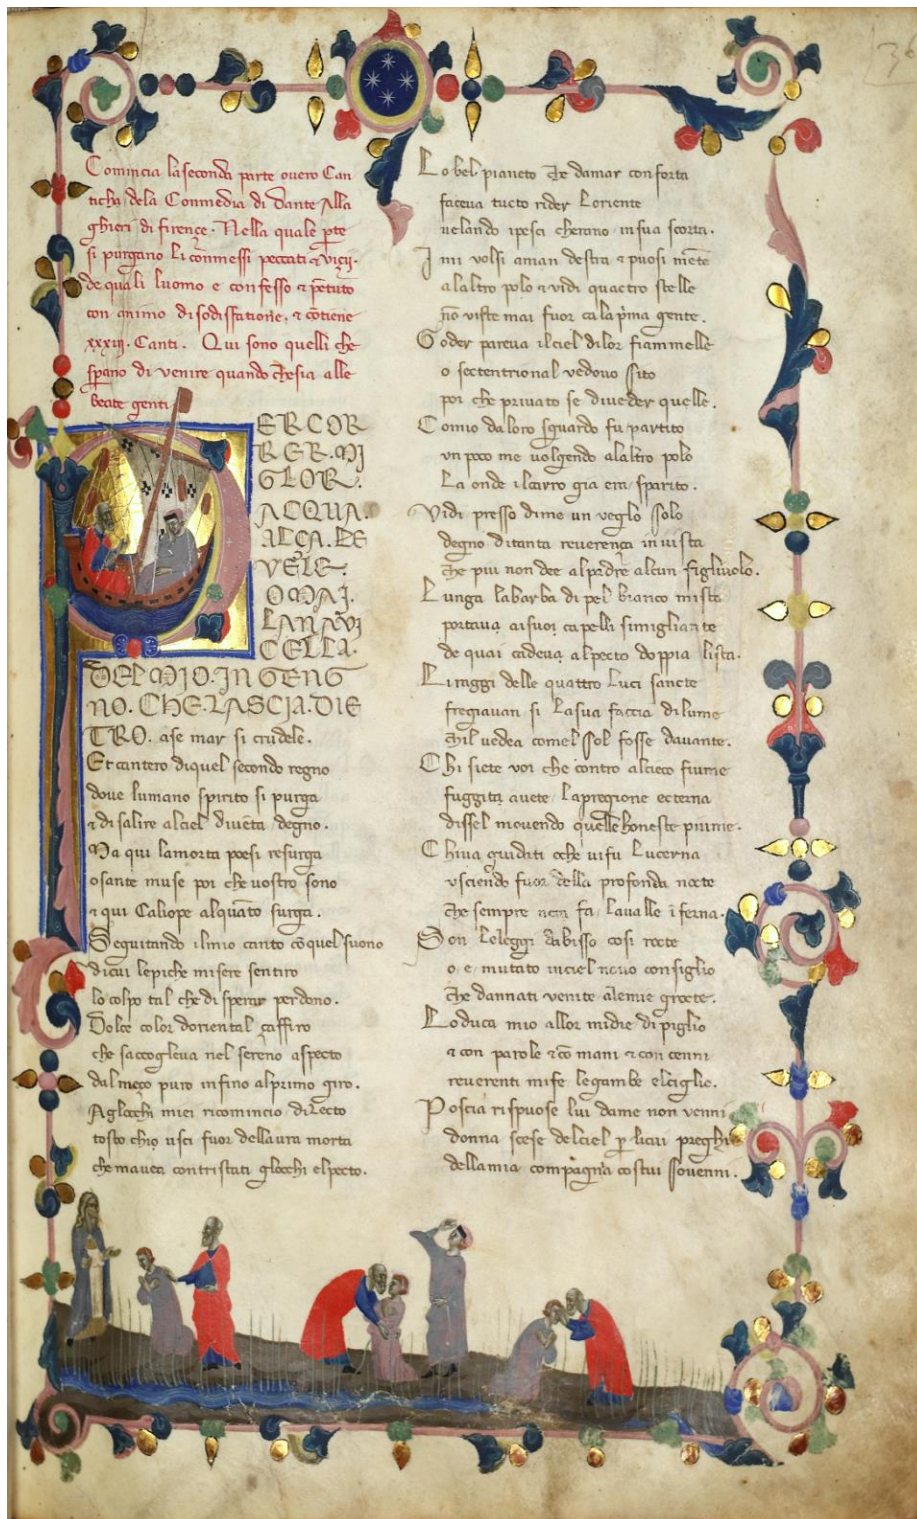 Comincia laseconda parte overo Can
ticha dela Commedia di Dante Alla
ghieri di firençe. Nella quale pte
si purgano li commessi peccati & viçij.
de quali luomo e confesso & pentuto
con animo di sodisfatione. & cōtiene
xxxiij. Canti. Qui sono quelli che
sperano di venire quando che sia alle
beate genti
PER COR
RER. MI
GLOR.
ACQUA.
ALÇA. LE
VELE.
OMAI.
LA NAVI
CELLA.
DEL MIO. INGENG
NO. CHE. LASCIA. DIE
TRO. ase mar si crudele.
Et cantero diquel secondo regno
doue lumano spirito si purga
& di salire alciel diuēta degno.
Ma qui lamorta poesi resurga
o sante muse poi che uostro sono
& qui Caliope alquāto surga.
Seguitando ilmio canto cōquel suono
dicui lepiche misere sentiro
lo colpo tal che disperar perdono.
Dolce color doriental çaffiro
che saccogleua nel sereno aspecto
dal meço puro infino alprimo giro.
Aglocchi miei ricomincio dilecto
tosto chio usci fuor dellaura morta
che mauea contristati glocchi elpecto.
Lo bel pianeto che damar conforta
faceua tucto rider loriente
uelando ipesci cherano insua scorta.
I mi volsi aman destra & puosi mēte
alaltro polo & vidi quactro stelle
nō viste mai fuor cala pma gente.
Goder pareua ilciel dilor fiammelle
o sectentrional vedouo sito
poi che priuato se diueder quelle.
Comio daloro sguardo fu partito
un poco me uolgendo alaltro polo
la onde ilcarro gia era sparito.
Vidi presso dime un veglo solo
degno ditanta reuerença inuista
che piu non dee alpadre alcun figliuolo.
Lunga labarba di pel bianco mista
portaua aisuoi capelli simigliante
de quai cadeua alpecto doppia lista.
Li raggi delle quattro luci sancte
fregiauan si lasua faccia dilume
chil vedea comel sol fosse dauante.
Chi siete voi che contro alcieco fiume
fuggita auete lapregione ecterna
dissel mouendo quelle honeste piume.
Chiua guidati oche uifu lucerna
usciendo fuor della profonda nocte
che sempre nera fa laualle īferna.
Son leleggi dabisso cosi rocte
o e mutato inciel nouo consiglio
che dannati venite alemie grocte.
Lo duca mio allor midie di piglio
& con parole & cō mani & con cenni
reuerenti mife legambe elciglio.
Poscia rispuose lui dame non venni
donna scese delciel p licui preghi
dellamia compagna costui souenni.